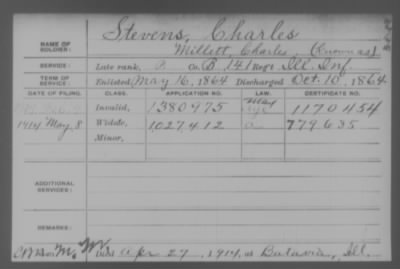 Stevens, Charles
NAME OF SOLDIER:
Millett, Charles, (Known as)
SERVICE: Late rank, P. Co. B, 141 Reg't Ill. Inf.
TERM OF SERVICE: Enlisted May 16, 1864 Discharged Oct. 10, 1864
DATE OF FILING. CLASS. APPLICATION NO. LAW. CERTIFICATE NO.
Invalid, 1380975 1170454
1914 May, 8 Widow, 1027412 a 779635
Minor,
ADDITIONAL SERVICES:
REMARKS:
Died Apr 27, 1914, at Batavia, Ill.